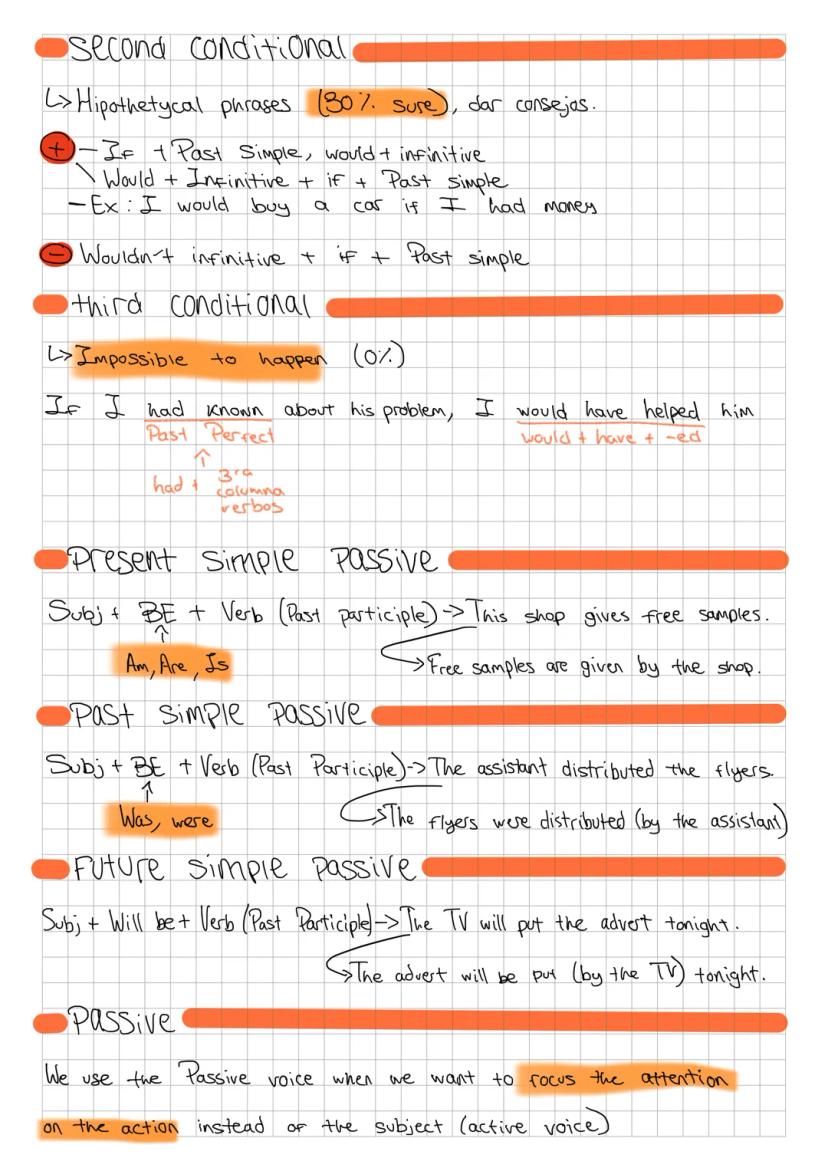 Second conditional
↳ Hipothetycal phrases (30% sure), dar consejos.
+ - If + Past Simple, would + infinitive
\ Would + Infinitive + if + Past simple
- Ex: I would buy a car if I had money
- Wouldn't infinitive + if + Past simple
third conditional
↳ Impossible to happen (0%)
If I had known about his problem, I would have helped him
Past Perfect would + have + -ed
↑
had + 3ra
columna
verbos
Present simple passive
Subj + BE + Verb (Past participle) -> This shop gives free samples.
↑
Am, Are, Is -> Free samples are given by the shop.
Past simple passive
Subj + BE + Verb (Past Participle) -> The assistant distributed the flyers.
↑
Was, were -> The flyers were distributed (by the assistant)
Future simple passive
Subj + Will be + Verb (Past Participle) -> The TV will put the advert tonight.
-> The advert will be put (by the TV) tonight.
Passive
We use the Passive voice when we want to focus the attention
on the action instead of the subject (active voice)